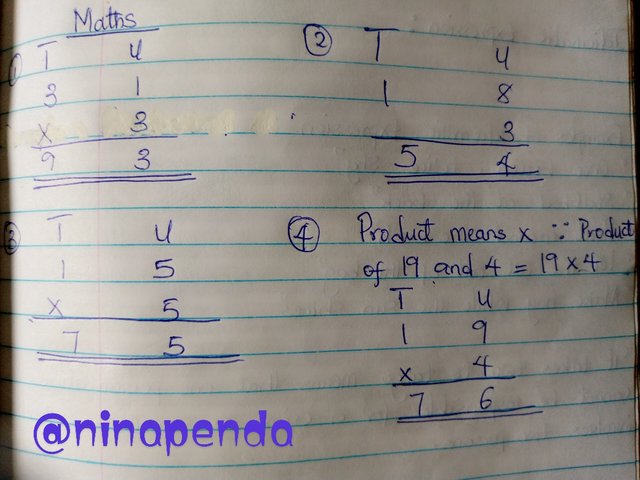 Maths
① T U
3 1
x 3
9 3
② T U
1 8
3
5 4
③ T U
1 5
x 5
7 5
④ Product means x ∵ Product
of 19 and 4 = 19 x 4
T U
1 9
x 4
7 6
@ninapenda